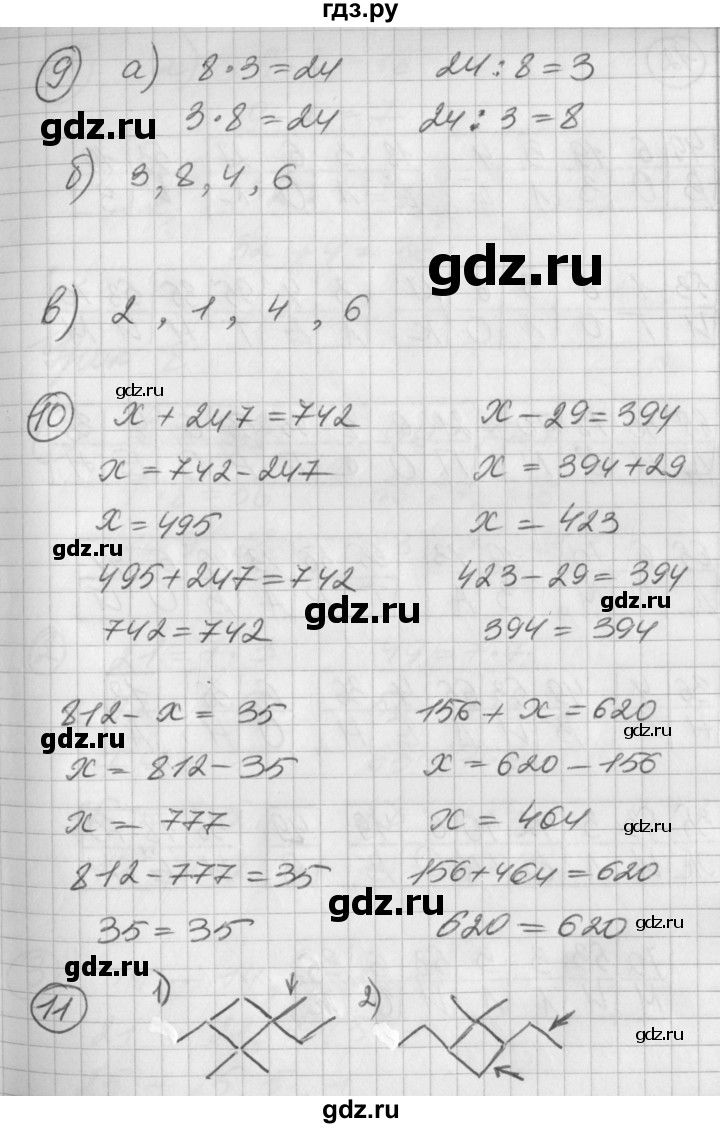 гдз.ру
9 а) 8 · 3 = 24 24 : 8 = 3
gdz.ru 3 · 8 = 24 24 : 3 = 8
б) 3, 8, 4, 6
gdz.ru
в) 2, 1, 4, 6
gdz.ru
10 x + 247 = 742 x - 29 = 394
x = 742 - 247 x = 394 + 29
x = 495 x = 423
gdz.ru
495 + 247 = 742 423 - 29 = 394
gdz.ru gdz.ru
742 = 742 394 = 394
812 - x = 35 156 + x = 620
gdz.ru gdz.ru
x = 812 - 35 x = 620 - 156
x = 777 x = 464
gdz.ru
812 - 777 = 35 156 + 464 = 620
gdz.ru
35 = 35 620 = 620
gdz.ru
gdz.ru
11 1) 2)
gdz.ru
gdz.ru